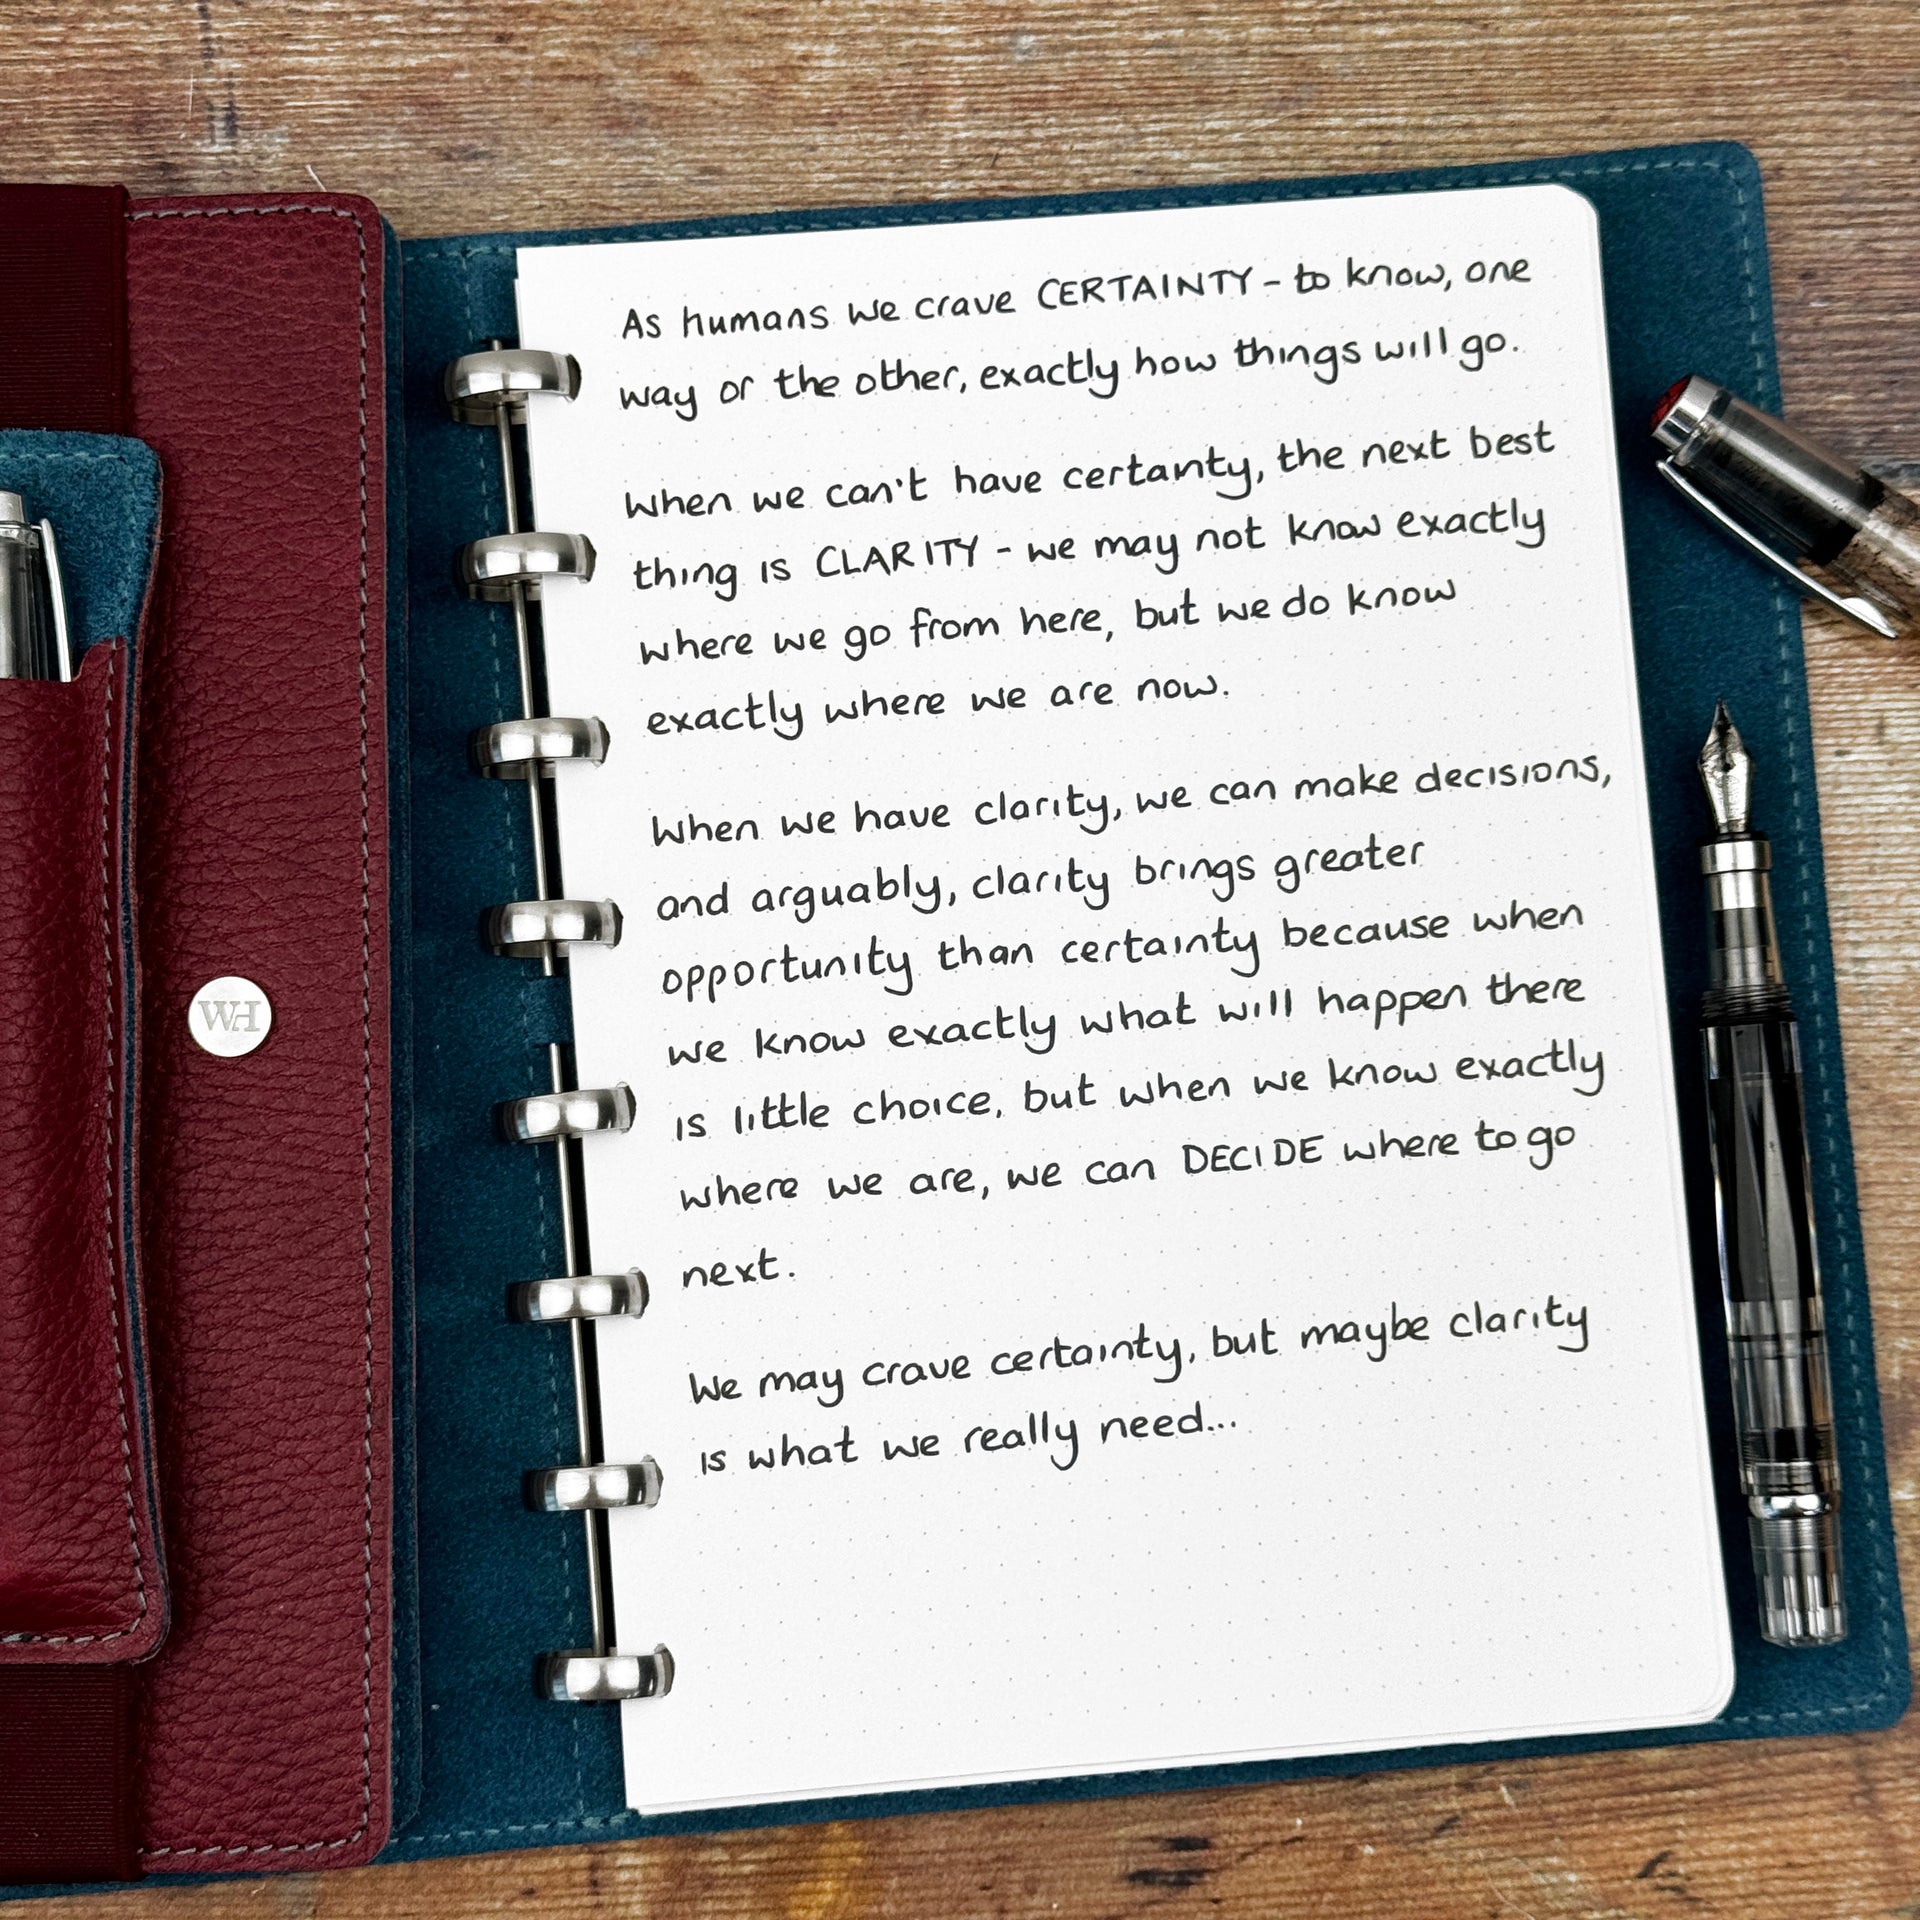 WH
As humans we crave CERTAINTY - to know, one
way or the other, exactly how things will go.
When we can't have certanty, the next best
thing is CLARITY - we may not know exactly
where we go from here, but we do know
exactly where we are now.
When we have clarity, we can make decisions,
and arguably, clarity brings greater
opportunity than certainty because when
we know exactly what will happen there
is little choice, but when we know exactly
where we are, we can DECIDE where to go
next.
We may crave certainty, but maybe clarity
is what we really need...